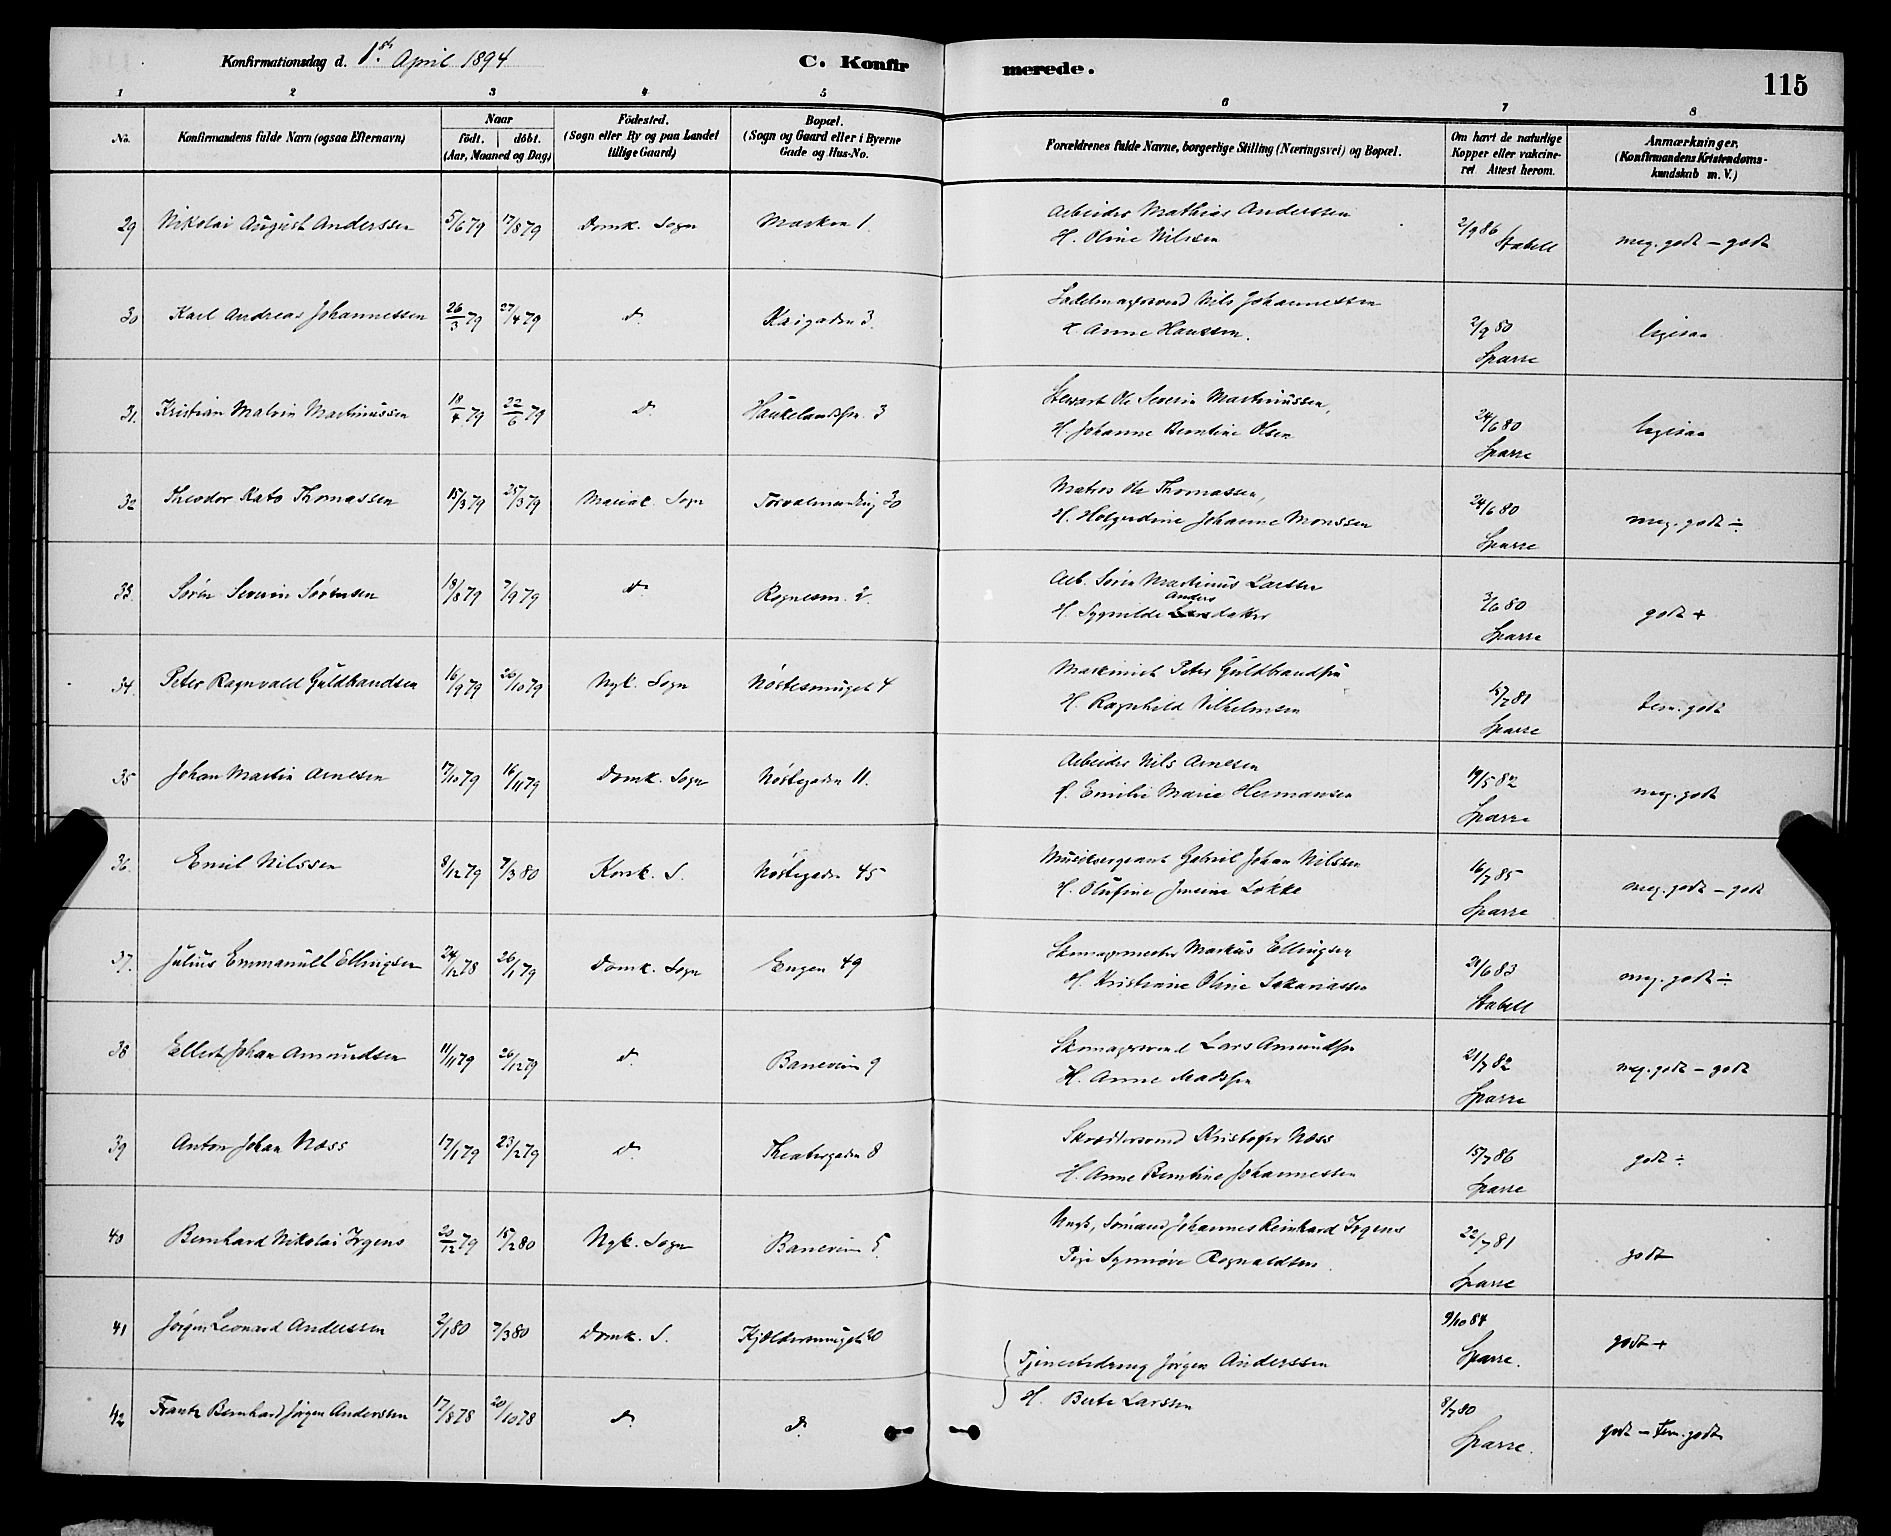 Konfirmationsdag d. 1ste April 1894
C. Konfirmerede.
115
1 2 3 4 5 6 7 8
No.
Konfirmandens fulde Navn (ogsaa Efternavn)
Naar
födt. döbt.
(Aar, Maaned og Dag)
Födested.
(Sogn eller By og paa Landet
tillige Gaard)
Bopæl.
(Sogn og Gaard eller i Byerne
Gade og Hus-No.
Forældrenes fulde Navne, borgerlige Stilling (Næringsvei) og Bopæl.
Om havt de naturlige
Kopper eller vakcine-
ret Attest herom.
Anmærkninger.
(Konfirmandens Kristendoms-
kundskab m. V.)
29 Nikolai August Anderssen 5/6 79 17/8 79 Domk. Sogn Marken 1. Arbeider Mathias Anderssen
H. Oline Nilssen 2/9 86 Stabell meg. godt - godt
30 Karl Andreas Johannessen 26/3 79 27/4 79 do Kaigaden 3. Sadelmagersvend Nils Johannessen
H. Anne Hanssen. 2/9 80
Sparre ligesaa
31. Kristian Malvin Martinussen 18/4 79 22/6 79 do Haukelandsvn. 3 Stewart Ole Severin Martinussen,
H. Johanne Berntine Olsen 24/6 80
Sparre ligesaa
32 Theodor Kato Thomassen 15/3 79 25/3 79 Mariak. Sogn Torvalmending 30 Matros Ole Thomassen,
H. Holgerdine Johanne Monssen 24/6 80
Sparre meg. godt ÷
33. Sören Severin Sörensen 18/8 79 7/9 79 do Rognesm. 2. Arb. Sören Martinus Larssen
H. Sygnilde Anders datter 3/6 80
Sparre godt +
34. Peter Ragnvald Guldbrandsen 16/9 79 26/10 79 Nyk. Sogn Nöstesmuget 4 Maskinist Peter Guldbrandsen
H. Ragnhild Vilhelmsen 15/7 81
Sparre tem. godt
35 Johan Martin Arnesen 17/10 79 16/11 79 Domk. Sogn Nöstegaden 11. Arbeider Nils Arnesen
H. Emilie Marie Hermansen 19/5 82
Sparre meg. godt
36. Emil Nilssen 8/12 79 7/3 80 Korsk. S. Nöstegaden 45 Musiksergeant Gabriel Johan Nilssen
H. Olufine Løkke 16/7 85
Sparre meg. godt - godt
37. Julius Emmanuel Ellingsen 24/12 78 26/1 79 Domk. Sogn Engen 49 Skomagermester Markus Ellingsen
H. Kristiane Oline Sakariassen 21/6 83
Stabell meg. godt ÷
38 Ellert Johan Amundsen 11/11 79 26/12 79 do Banevein 9 Skomagersvend Lars Amundsen
H. Anne Madssen 21/7 82
Sparre meg. godt - godt
39 Anton Johan Næss 17/1 79 23/2 79 do Theatergaden 8 Skræddersvend Kristofer Næss
H. Anne Berntine Johannessen 15/7 86
Sparre godt ÷
40 Bernhard Nikolai Irgens 20/12 79 15/2 80 Nyk. Sogn Banevein 5. Ungk. Sömand Johannes Reinhard Irgens
Pige Synnöve Rognaldsen 22/7 81
Sparre godt
41 Jörgen Leonard Anderssen 2/1 80 7/3 80 Domk. S. Kjeldersmuget 20 9/10 84
Sparre. godt +
Tjenestedreng Jörgen Anderssen
H. Berte Larssen
42 Frantz Bernhard Jörgen Anderssen 17/8 78 20/10 78 do do 8/7 80
Sparre. godt - tem. godt